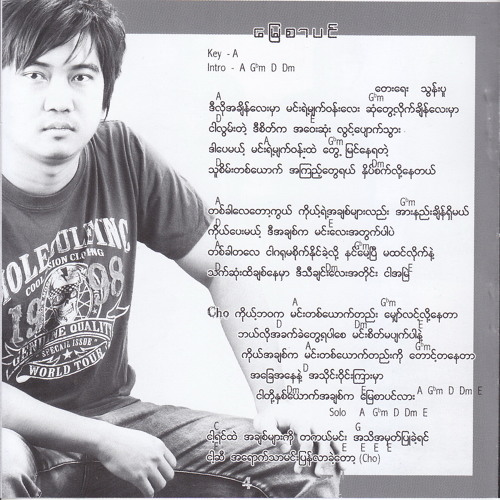 မြေစာပင်
Key - A
Intro - A G♭m D Dm
တေးရေး သွန်းပူ
A G♭m
ဒီလိုအချိန်လေးမှာ မင်းရဲ့မျက်ဝန်းလေး ဆုံတွေ့လိုက်ချိန်လေးမှာ
ငါလွမ်းတဲ့ ဒီစိတ်က အဝေးဆုံး လွင့်ပျောက်သွား
A G♭m
ဒါပေမယ့် မင်းရဲ့မျက်ဝန်းထဲ တွေ့မြင်နေရတဲ့
D Dm
သူစိမ်းတစ်ယောက် အကြည့်တွေရယ် နှိပ်စက်လို့နေတယ်
A G♭m
တစ်ခါလေတော့ကွယ် ကိုယ့်ရဲ့အချစ်များလည်း အားနည်းချိန်ရှိမယ်
D E
ကိုယ်ပေးမယ့် ဒီအချစ်က မင်းလေးအတွက်ပါပဲ
A G♭m
တစ်ခါတလေ ငါဂရုမစိုက်နိုင်ခဲ့လို့ နင်မေ့ပြီ မထင်လိုက်နဲ့
D E A
သက်ဆုံးထိချစ်နေမှာ ဒီသီချင်းလေးအတိုင်း ငါအမြဲ
A G♭m
Cho ကိုယ့်ဘဝက မင်းတစ်ယောက်တည်း မျှော်လင့်လို့နေတာ
D Dm E
ဘယ်လိုအခက်ခဲတွေ့ရပါစေ မင်းစိတ်မပျက်ပါနဲ့
A G♭m
ကိုယ့်အချစ်က မင်းတစ်ယောက်တည်းကို တောင့်တနေတာ
D
အခြေအနေနဲ့ အသိုင်းဝိုင်းကြားမှာ
Dm E A G♭m D Dm E
ငါတို့နှစ်ယောက်အချစ်က မြေစာပင်လား
Solo A G♭m D Dm E
C G
ငါ့ရင်ထဲ အချစ်များကို တကယ်မင်း အသိအမှတ်ပြုခဲ့ရင်
ငါ့ဆီ အရောက်သာမင်းပြန်လာခဲ့တော့ (Cho)
COOL
VISION CLOTHING
1998
GENUINE QUALITY
SPECIAL ISSUE
WORLD TOUR
4